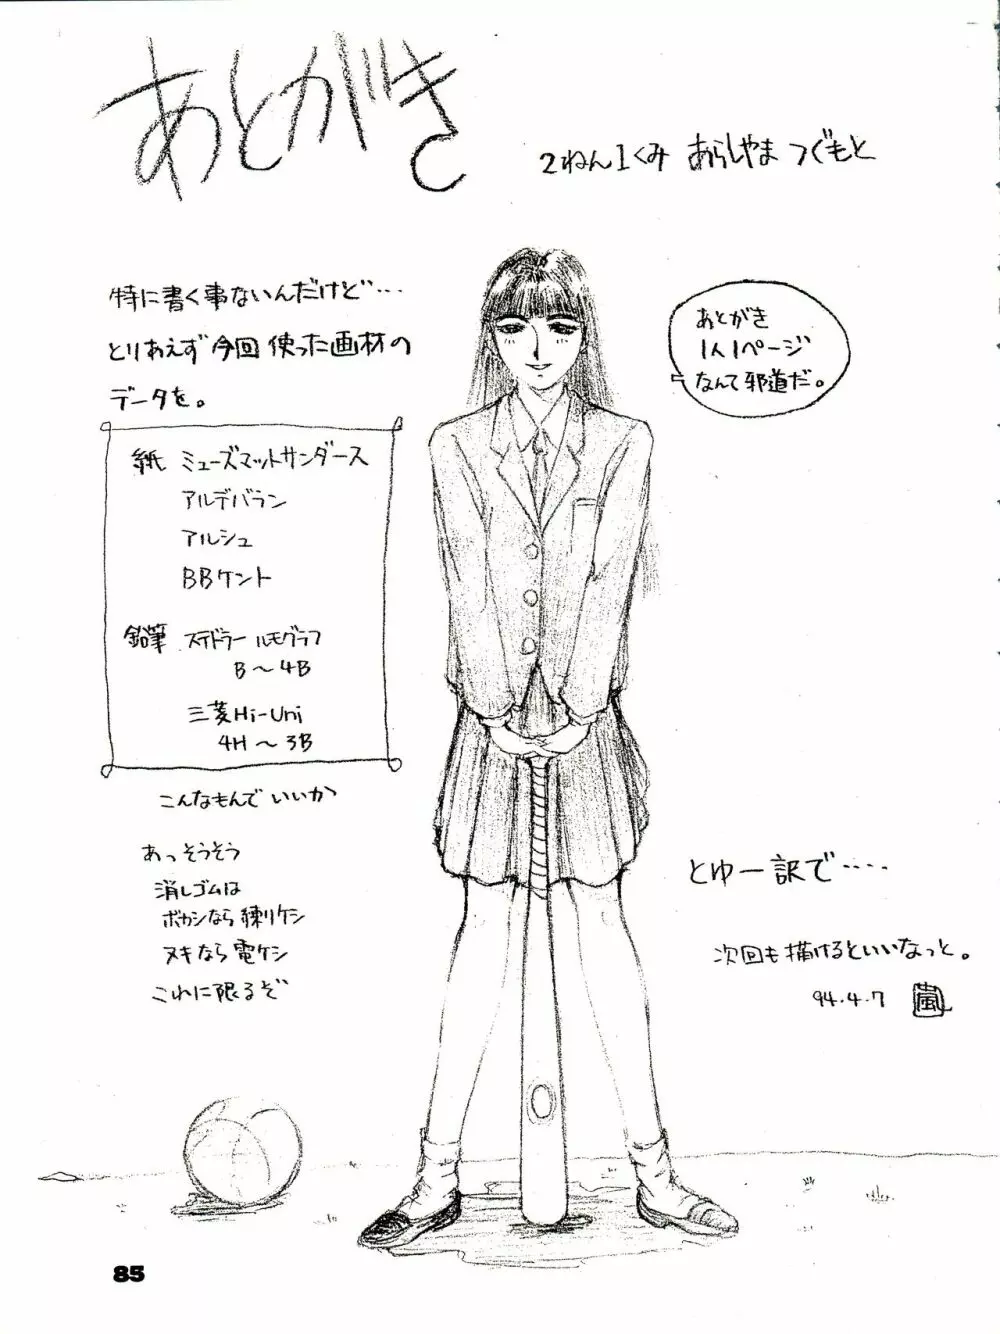 あとがき
2ねん1くみ あらしやま つぐもと
特に書く事ないんだけど…
とりあえず今回使った画材の
データを。
紙 ミューズマットサンダース
アルデバラン
アルシュ
BBケント
鉛筆 ステドラー ルモグラフ
B〜4B
三菱Hi-Uni
4H〜3B
こんなもんでいいか
あっそうそう
消しゴムは
ボカシなら練りケシ
ヌキなら電ケシ
これに限るぞ
あとがき
1人1ページ
なんて邪道だ。
とゆー訳で‥‥
次回も描けるといいなっと。
94.4.7 嵐
85